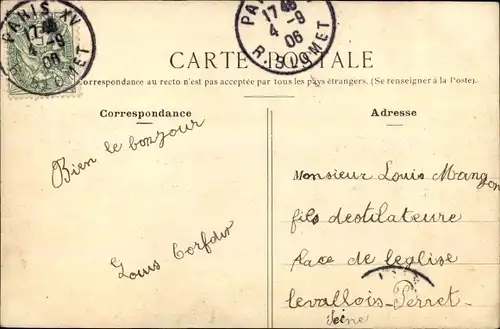 PARIS XV
1740
4 - 9
06
R. BLOMET
PARIS XV
1740
4 - 9
06
R. BLOMET
CARTE POSTALE
correspondance au recto n'est pas acceptée par tous les pays étrangers. (Se renseigner à la Poste).
Correspondance
Adresse
Bien le bonjour
Louis
Monsieur Louis Mangon
fils destilateure
place de leglise
levallois-Perret
Seine